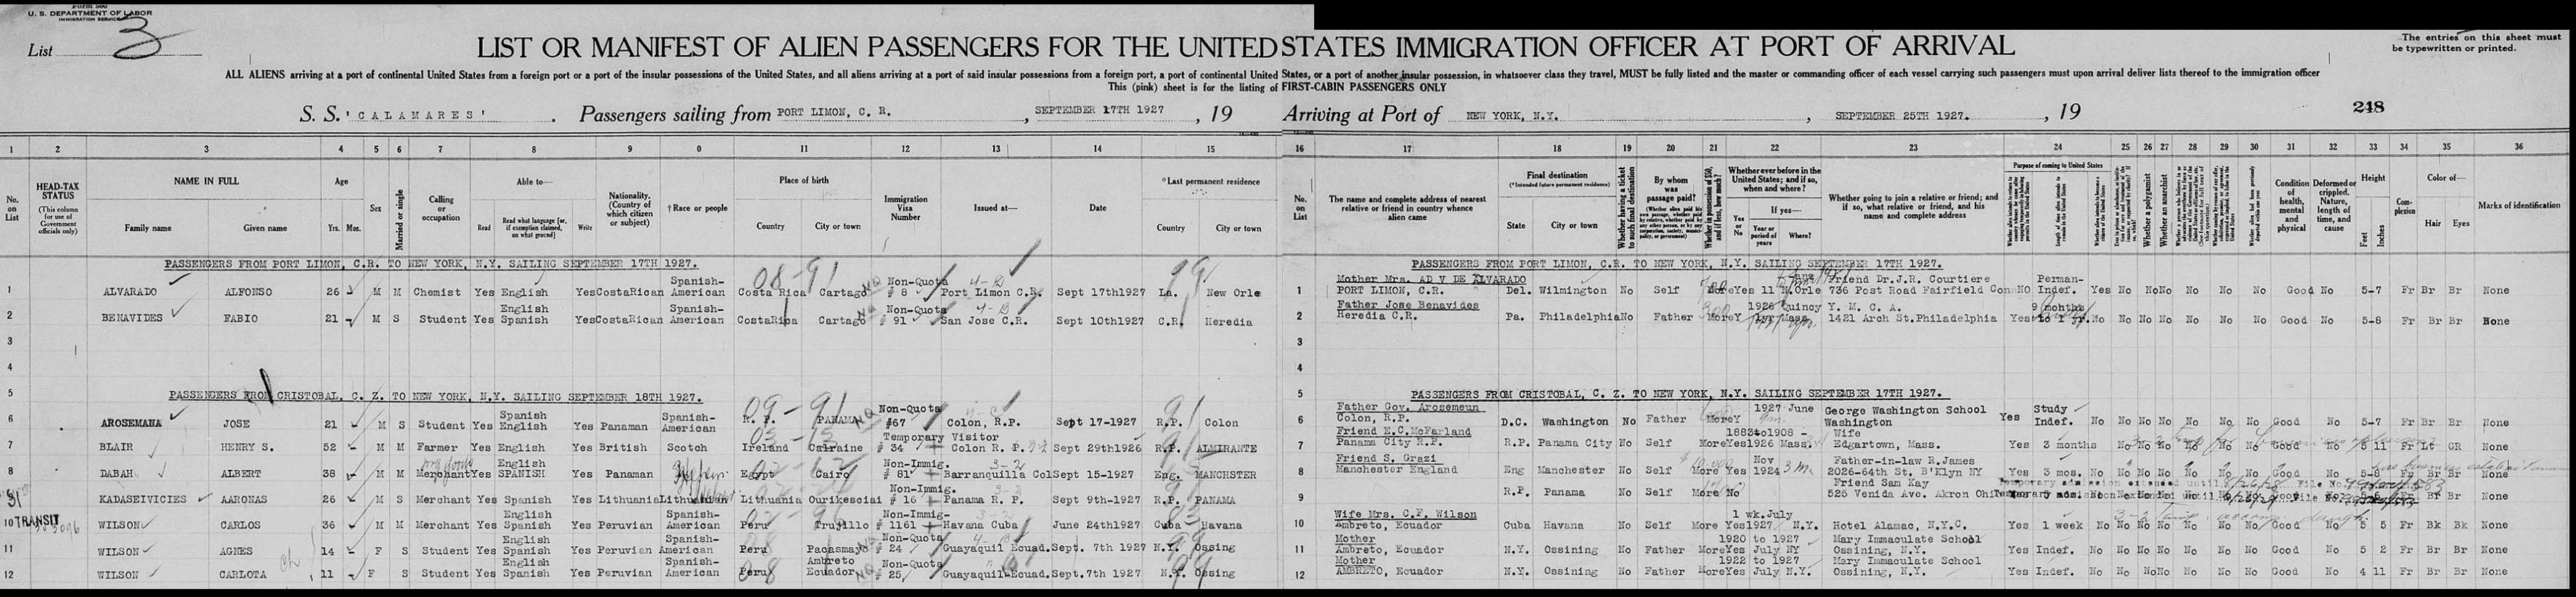 Form 500
U. S. DEPARTMENT OF LABOR
IMMIGRATION SERVICE
List 3
LIST OR MANIFEST OF ALIEN PASSENGERS FOR THE UNITED STATES IMMIGRATION OFFICER AT PORT OF ARRIVAL
The entries on this sheet must be typewritten or printed.
ALL ALIENS arriving at a port of continental United States from a foreign port or a port of the insular possessions of the United States, and all aliens arriving at a port of said insular possessions from a foreign port, a port of continental United States, or a port of another insular possession, in whatsoever class they travel, MUST be fully listed and the master or commanding officer of each vessel carrying such passengers must upon arrival deliver lists thereof to the immigration officer
This (pink) sheet is for the listing of FIRST-CABIN PASSENGERS ONLY
S. S. 'CALAMARES' . Passengers sailing from PORT LIMON, C. R. , SEPTEMBER 17TH 1927 , 19 Arriving at Port of NEW YORK, N.Y. , SEPTEMBER 25TH 1927. , 19 248
1 2 3 4 5 6 7 8 9 0 11 12 13 14 15 16 17 18 19 20 21 22 23 24 25 26 27 28 29 30 31 32 33 34 35 36
No. on List HEAD-TAX STATUS (This column for use of Government officials only) NAME IN FULL Family name Given name Age Yrs. Mos. Sex Married or single Calling or occupation Able to— Read Read what language [or, if exemption claimed, on what ground] Write Nationality. (Country of which citizen or subject) †Race or people Place of birth Country City or town Immigration Visa Number Issued at— Date *Last permanent residence Country City or town
No. on List The name and complete address of nearest relative or friend in country whence alien came Final destination (*Intended future permanent residence) State City or town Whether having a ticket to such final destination By whom was passage paid? Whether in possession of $50, and if less, how much? Whether ever before in the United States; and if so, when and where? Yes or No If yes— Year or period of years Where? Whether going to join a relative or friend; and if so, what relative or friend, and his name and complete address Purpose of coming to United States Whether a polygamist Whether an anarchist Condition of health, mental and physical Deformed or crippled. Nature, length of time, and cause Height Feet Inches Complexion Color of— Hair Eyes Marks of identification
PASSENGERS FROM PORT LIMON, C.R. TO NEW YORK, N.Y. SAILING SEPTEMBER 17TH 1927. PASSENGERS FROM PORT LIMON, C.R. TO NEW YORK, N.Y. SAILING SEPTEMBER 17TH 1927.
1 ALVARADO ALFONSO 26 M M Chemist Yes English Yes CostaRican Spanish-American Costa Rica Cartago Non-Quota # 8 Port Limon C.R. Sept 17th1927 La. New Orle 1 Mother Mrs. AD V DE ALVARADO PORT LIMON, C.R. Del. Wilmington No Self More Yes 11 N.Orle Friend Dr.J.R. Courtiere 736 Post Road Fairfield Con NO Perman-Indef. Yes No No No No No No Good No 5-7 Fr Br Br None
2 BENAVIDES FABIO 21 M S Student Yes English Spanish Yes CostaRican Spanish-American CostaRica Cartago Non-Quota # 91 San Jose C.R. Sept 10th1927 C.R. Heredia 2 Father Jose Benavides Heredia C.R. Pa. Philadelphia No Father More Y 1926 Quincy Mass. Y. M. C. A. 1421 Arch St.Philadelphia Yes 9 months No No No No No No No Good No 5-8 Fr Br Br None
3 3
4 4
5 PASSENGERS FROM CRISTOBAL, C. Z. TO NEW YORK, N.Y. SAILING SEPTEMBER 18TH 1927. 5 PASSENGERS FROM CRISTOBAL, C. Z. TO NEW YORK, N.Y. SAILING SEPTEMBER 17TH 1927.
6 AROSEMANA JOSE 21 M S Student Yes Spanish English Yes Panaman Spanish-American R. P. PANAMA Non-Quota #67 Colon, R.P. Sept 17-1927 R.P. Colon 6 Father Gov. Arosemeun Colon, R.P. D.C. Washington No Father More Y 1927 June George Washington School Washington Yes Study Indef. No No No No No No No Good No 5-7 Fr Br Br None
7 BLAIR HENRY S. 52 M M Farmer Yes English Yes British Scotch Ireland Colraine Temporary Visitor # 34 Colon R. P. Sept 29th1926 R.P. ALMIRANTE 7 Friend E.C.McFarland Panama City R.P. R.P. Panama City No Self More Yes 1883to1908 - 1926 Mass. Wife Edgartown, Mass. Yes 3 months No No No No No No No Good No 5 11 Fr Lt GR None
8 DABAH ALBERT 38 M M Merchant Yes English SPANISH Yes Panaman Egypt Cairo Non-Immig. # 81 Barranquilla Col Sept 15-1927 Eng. MANCHSTER 8 Friend S. Grazi Manchester England Eng Manchester No Self More Yes Nov 1924 3 m. Father-in-law R.James 2026-64th St. B'Klyn NY Yes 3 mos. No No No No No No No Good No 5-8 Fr Br Br None
9 KADASEIVICIES AARONAS 26 M S Merchant Yes Spanish Yes Lithuania Lithuanian Lithuania Ourikesciai Non-Immig. # 16 Panama R. P. Sept 9th-1927 R.P. PANAMA 9 R.P. Panama No Self More No Friend Sam Kay 525 Venida Ave. Akron Ohi Temporary admission extended until 8/26/28 File No. Br Br None
10 TRANSIT WILSON CARLOS 36 M M Merchant Yes English Spanish Yes Peruvian Spanish-American Peru Trujillo Non-Immig- # 1161 Havana Cuba June 24th1927 Cuba Havana 10 Wife Mrs. C.F. Wilson Ambreto, Ecuador Cuba Havana No Self More Yes 1 wk.July 1927 N.Y. Hotel Alamac, N.Y.C. Yes 1 week No No No No No No No Good No 5 5 Fr Bk Bk None
11 WILSON AGNES 14 F S Student Yes English Spanish Yes Peruvian Spanish-American Peru Pacasmayo Non-Quota # 24 Guayaquil Ecuad. Sept. 7th 1927 N.Y. Ossing 11 Mother Ambreto, Ecuador N.Y. Ossining No Father More Yes 1920 to 1927 July NY Mary Immaculate School Ossining, N.Y. Yes Indef. No No No No No No No Good No 5 2 Fr Br Br None
12 WILSON CARLOTA 11 F S Student Yes English Spanish Yes Peruvian Spanish-American Peru Ambreto Ecuador Non-Quota # 25 Guayaquil Ecuad. Sept.7th 1927 N.Y. Ossing 12 Mother AMBRETO, Ecuador N.Y. Ossining No Father More Yes 1922 to 1927 July N.Y. Mary Immaculate School Ossining, N.Y. Yes Indef. No No No No No No No Good No 4 11 Fr Br Br None